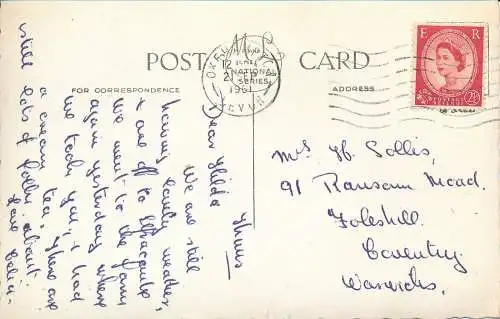 POST CARD
FOR CORRESPONDENCE
ADDRESS
1961
E R
2½
Mrs H. Sollis,
91 Ransom Road.
Foleshill.
Coventry.
Warwicks.
Thurs
Dear Hilda
We are still
having lovely weather,
& are off to Ilfracombe
We went to the farm
again yesterday where
we took you, & had
a cream tea. There are
still lots of folks about.
Love Celia.